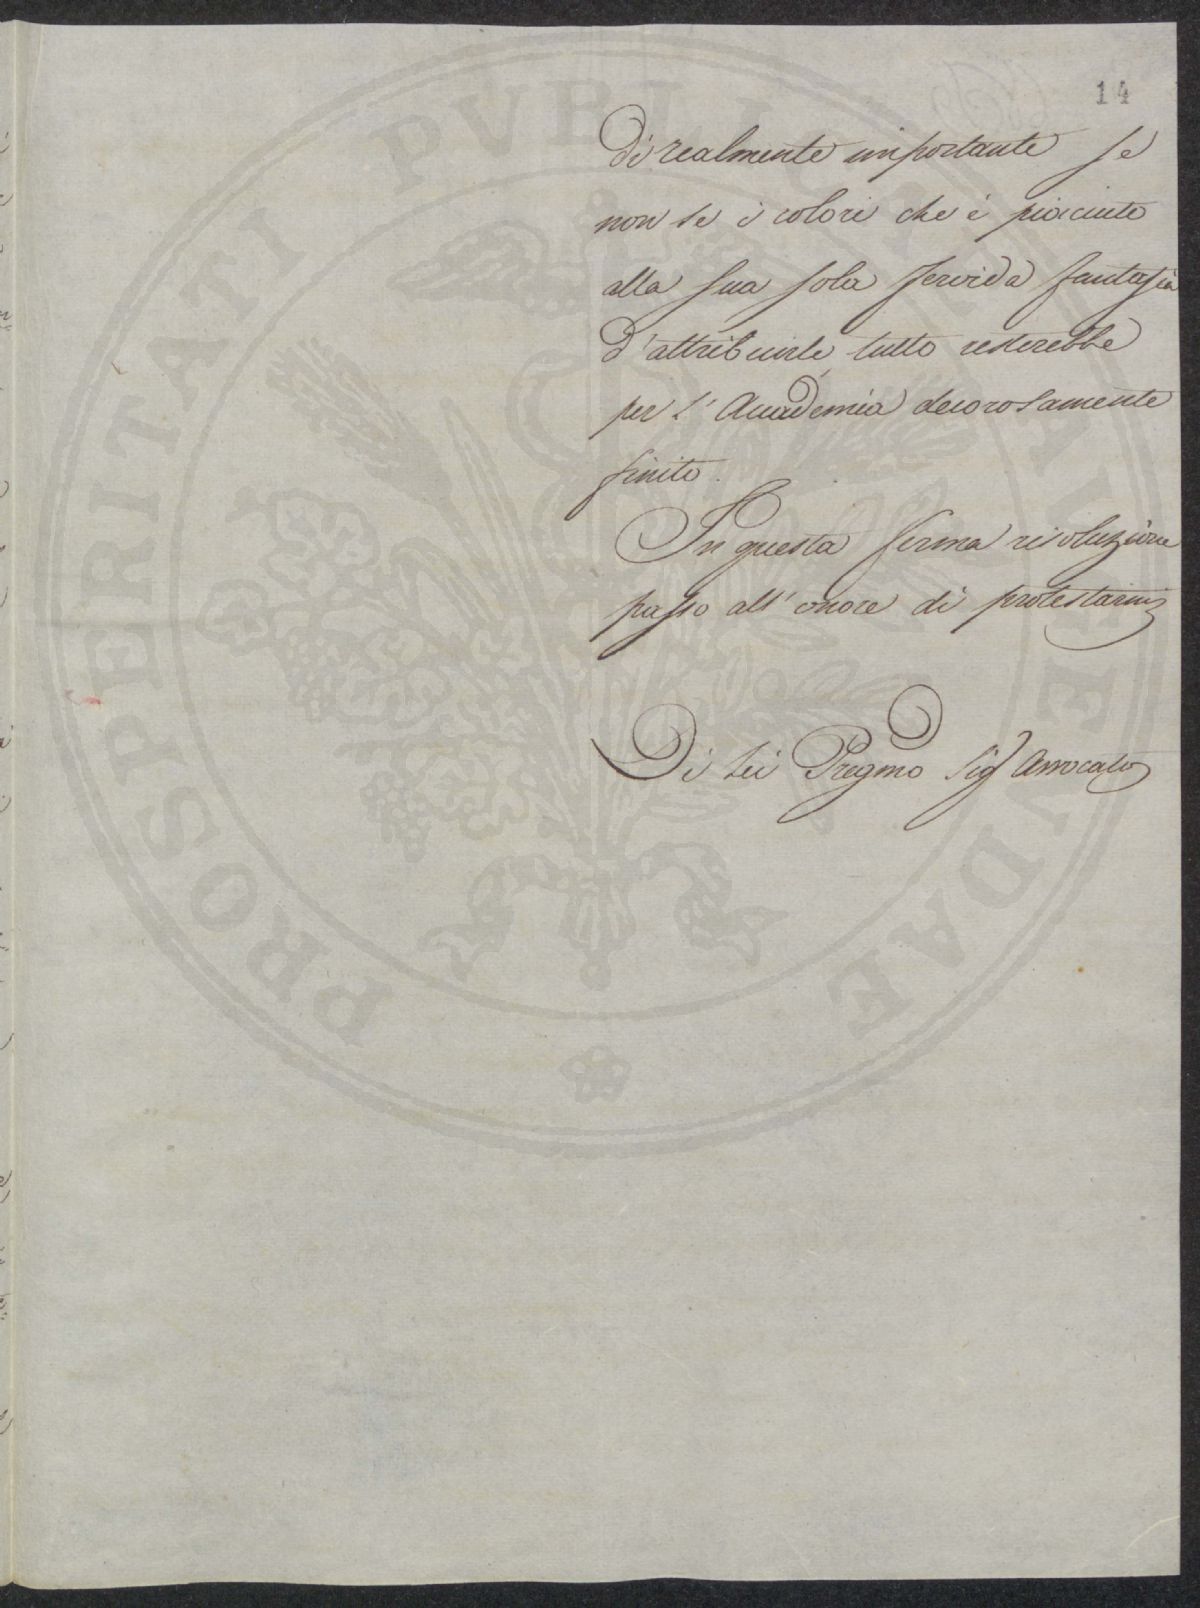 14
di realmente importante se
non se i colori che è piaciuto
alla sua sola fervida fantasia
d'attribuirle tutto resterebbe
per l'Accademia decorosamente
finito.
In questa ferma risoluzione
passo all'onore di protestarmi
Di Lei Pregmo Sig Avvocato
PROSPERITATI PVBLICAE AVGENDAE